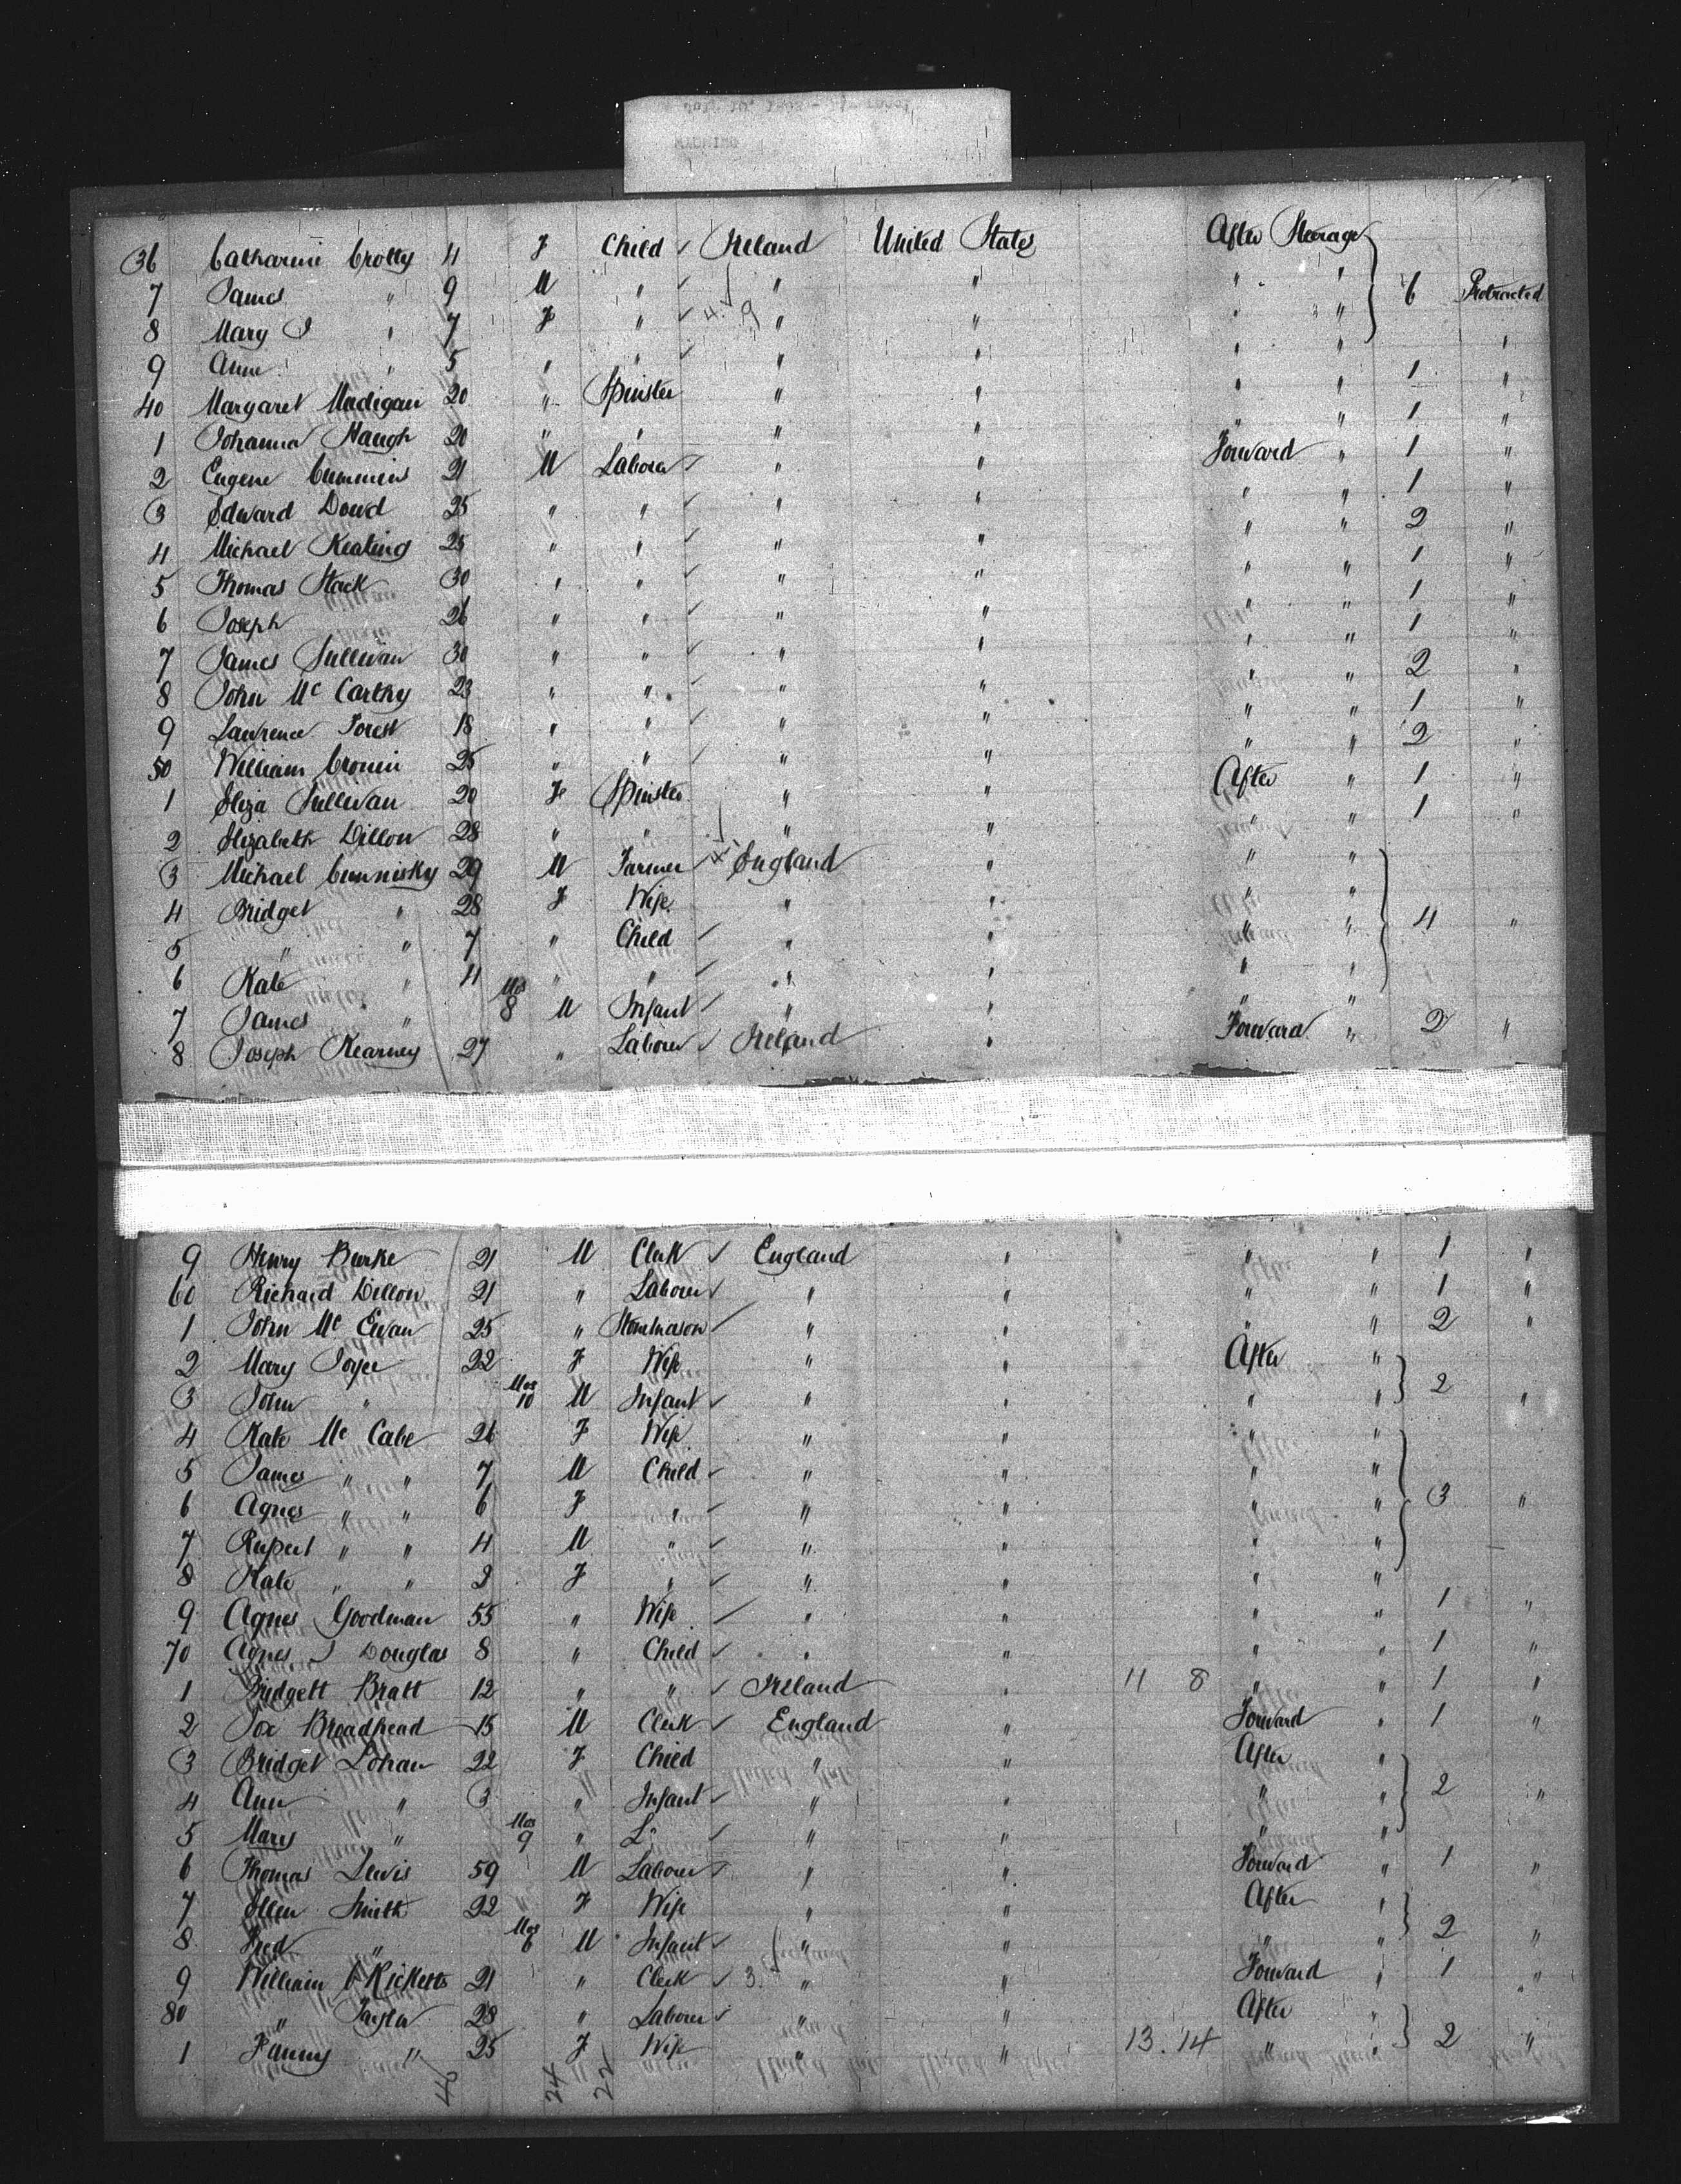 36 Catharine Crotty 4 F Child ✓ Ireland United States After Steerage
7 James " 9 M " ✓ " " " " 6 Protracted
8 Mary J " 7 F " ✓ 4. 9 " " " "
9 Anne " 5 " " ✓ " " " " "
40 Margaret Madigan 20 " Spinster " " " " 1 "
1 Johanna Haugh 20 " " " " " " 1 "
2 Eugene Cummins 21 M Laborer ✓ " " Forward " 1 "
3 Edward Dowd 25 " " ✓ " " " " 1 "
4 Michael Keating 25 " " ✓ " " " " 2 "
5 Thomas Stack 30 " " ✓ " " " " 1 "
6 Joseph 26 " " ✓ " " " " 1 "
7 James Sullivan 30 " " ✓ " " " " 1 "
8 John Mc Carthy 23 " " ✓ " " " " 2 "
9 Lawrence Forest 18 " " ✓ " " " " 1 "
50 William Cronin 25 " " ✓ " " " " 2 "
1 Eliza Sullivan 20 F Spinster " " After " 1 "
2 Elizabeth Dillon 28 " " " " " " 1 "
3 Michael Cunnisky 29 M Farmer ✓ England " " "
4 Bridget " 28 F Wife " " " "
5 " " 7 " Child ✓ " " " " 4 "
6 Kate " 4 " " ✓ " " " "
7 James " Mos 8 M Infant ✓ " " " "
8 Joseph Kearney 27 " Laborer ✓ Ireland " Forward " 2 "
9 Henry Burke 21 M Clerk ✓ England " " " 1 "
60 Richard Dillon 21 " Laborer ✓ " " " " 1 "
1 John Mc Ewan 25 " Stonemason ✓ " " " " 2 "
2 Mary Joyce 22 F Wife " " After "
3 John " Mos 10 M Infant ✓ " " " " 2 "
4 Kate Mc Cabe 26 F Wife " " " "
5 James " " 7 M Child ✓ " " " "
6 Agnes " " 6 F " ✓ " " " " 3 "
7 Rupert " " 4 M " ✓ " " " "
8 Kate " " 2 F " ✓ " " " "
9 Agnes Goodman 55 " Wife ✓ " " " " 1 "
70 Agnes J Douglas 8 " Child ✓ " " " " 1 "
1 Bridgett Bratt 12 " " ✓ Ireland " 11 8 " " 1 "
2 Joe Broadhead 15 M Clerk ✓ England " Forward " 1 "
3 Bridget Lohan 22 F Child " " After "
4 Ann " 3 " Infant ✓ " " " " 2 "
5 Mary " Mos 9 " ✓ " " " "
6 Thomas Lewis 59 M Laborer ✓ " " Forward " 1 "
7 Ellen Smith 22 F Wife " " After "
8 Fred " Mos 6 M Infant ✓ " " " " 2 "
9 William Ricketts 21 " Clerk ✓ 3. " " Forward " 1 "
80 " Taylor 28 " Laborer ✓ " " After "
1 Fanny " 25 F Wife " " 13.14 " " 2 "
24 22